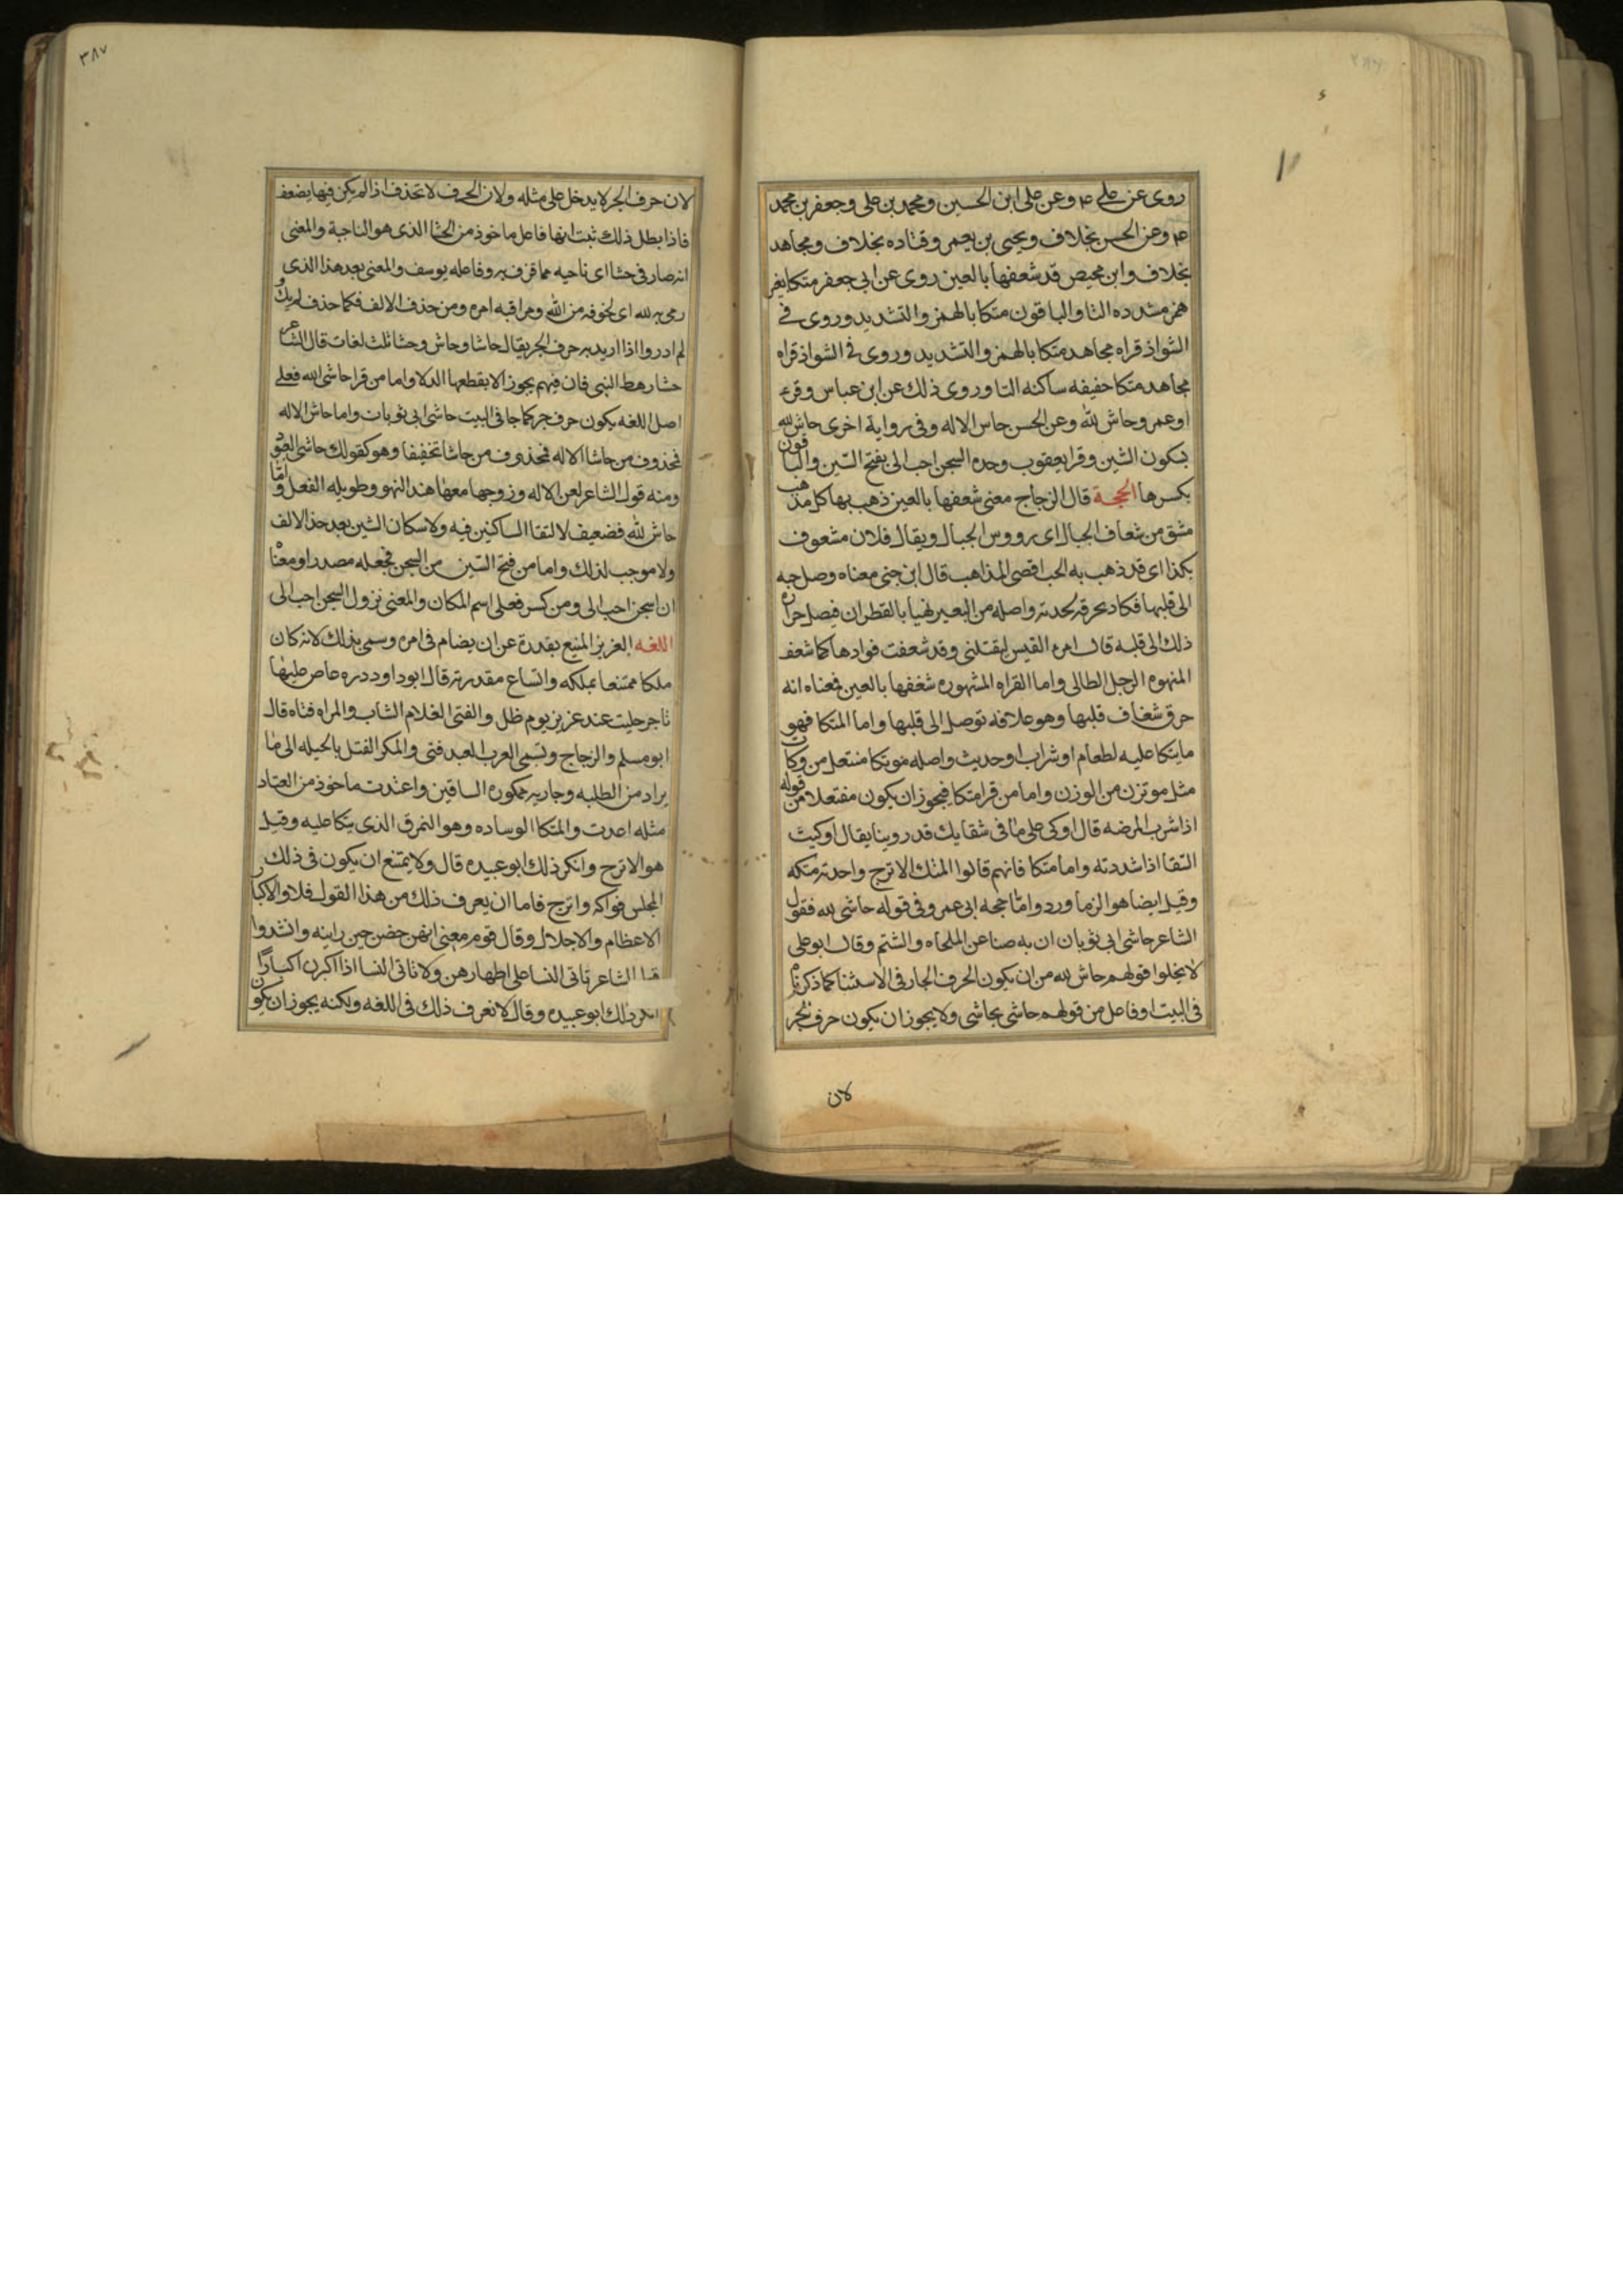 روى عن على ٤م وعن على ابن الحسين ومحمد بن على وجعفر بن محمد
٤م وعن الحسن بخلاف ويحيى بن يعمر وقتاده بخلاف ومجاهد
بخلاف وابن محيص قد شعفها بالعين روى عن ابى جعفر متكا بغير
همز مشدده التا والباقون متكا بالهمز والتشديد وروى فى
الشواذ قراه مجاهد متكا بالهمز والتشديد وروى فى الشواذ قراه
مجاهد متكا خفيفه ساكنه التا وروى ذلك عن ابن عباس وقرء
او عمرو حاش لله وعن الحسن حاس الاله وفى رواية اخرى حاش لله
بسكون الشين وقرا يعقوب وحده السجن احب الى بفتح السين والباقون
بكسرها الحجة قال الزجاج معنى شعفها بالعين ذهب بها كل مذهب
مشق من شعاف الجبال اى رووس الجبال ويقال فلان مشعوف
بكذا اى قد ذهب به الحب اقصى المذاهب قال ابن جنى معناه وصل حبه
الى قلبها فكاد يحرقه لحدته واصله من البعير يهنا بالقطران فيصل حراره
ذلك الى قلبه قال امرء القيس ليقتلنى وقد شعفت فوادها كما شعف
المنهوه الرجل الطالى واما القراه المشهوره شغفها بالعين فمعناه انه
حرق شغاف قلبها وهو علاقه توصل الى قلبها واما المتكا فهو
مايتكا عليه لطعام او شراب او حديث واصله موتكا منتعل من وكات
مثل موتزن من الوزن واما من قرا متكا فيجوز ان يكون مفتعلا من قوله
اذا شرب المرضه قال اوكى على ما فى شقايك قد روينا يقال اوكيت
السقا اذا شددته واما متكا فانهم قالوا المتك الاترج واحدته متكه
وقيل ايضا هو الزماورد واما حجه ابى عمرو فى قوله حاشى لله فقول
الشاعر حاشى ابى ثوبان ان به صنا عن الملحاه والشتم وقال ابو على
لا يخلوا قولهم حاش لله من ان يكون الحرف الجار فى الاستثنا كما ذكرناه
فى البيت او فاعل من قولهم حاشى يحاشى ولا يجوز ان يكون حرف الجر
لان
٣٨٧
لان حرف الجر لا يدخل على مثله ولان الحرف لا تحذف اذا لم يكن فيها يضعف
فاذا بطل ذلك ثبت انها فاعل ماخوذ من الحشا الذى هو الناحية والمعنى
انه صار فى حشا اى ناحيه مما قرف به وفاعله يوسف والمعنى بعد هذا الذى
رمى به لله اى لخوفه من الله ومراقبه امره ومن حذف الالف فكما حذف لم يك و
لم ادر واذا اريد به حرف الجر يقال حاشا وحاش وحشا ثلث لغات قال الشاعر
حشا رهط النبى فان فيهم بجوز الا بقطعها الدلا واما من قرا حاشى الله فعلى
اصل اللغه يكون حرف جر كما جا فى البيت حاشى ابى ثوبات واما حاش الاله
فمحذوف من حاشا الاله فمحذوف من حاشا تخفيفا وهو كقولك حاشى المعبود
ومنه قول الشاعر لعن الاله وزوجها معها هند النهو وطويله الفعل واما
حاش لله فضعيف لالتقا الساكنين فيه ولاسكان الشين بعد حذ الالف
ولا موجب لذلك واما من فتح السين من السجن فجعله مصدرا ومعناه
ان اسجن احب الى ومن كسر فعلى اسم المكان والمعنى نزول السجن احب الى
اللغه العزيز المنيع بقدرة عن ان يضام فى امره وسمى بذلك لانه كان
ملكا ممتنعا بملكه واتساع مقدرته قال ابو داود دره غاص عليها
تاجر جليت عند عزيز يوم ظل والفتى الغلام الشاب والمراه فتاه قال
ابو مسلم والزجاج وتسمى العرب العبد فتى والمكر الفتل بالحيله الى ما
يراد من الطلبه وجاريه ممكوره الساقين واعتدت ماخوذ من العتاد
مثله اعدت والمتكا الوساده وهو النمرق الذى يتكا عليه وقيل
هو الاترح وانكر ذلك ابو عبيده قال ولا يمتنع ان يكون فى ذلك
المجلس فواكه واترج فاما ان يعرف ذلك من هذا القول فلا والاكبار
الاعظام والاجلال وقال قوم معنى انهن حضن حين راينه وانشدوا
الشاعر ناتى النسا على اطهارهن ولا ناتى النسا اذا اكبرن اكبارا
انكر ذلك ابو عبيده وقال لا نعرف ذلك فى اللغه ولكنه يجوز ان يكون